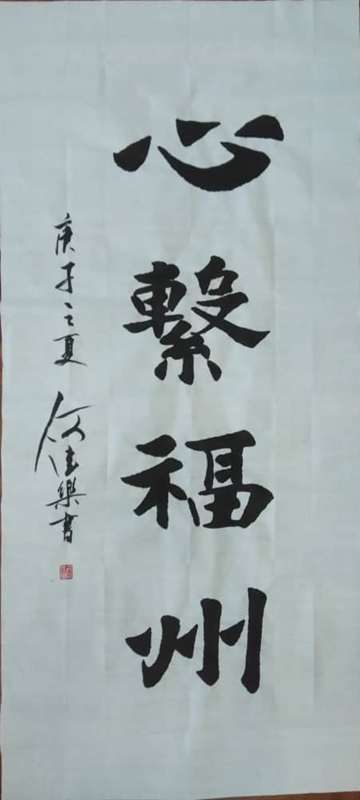 心繫福州
庚子之夏 何佳樂書